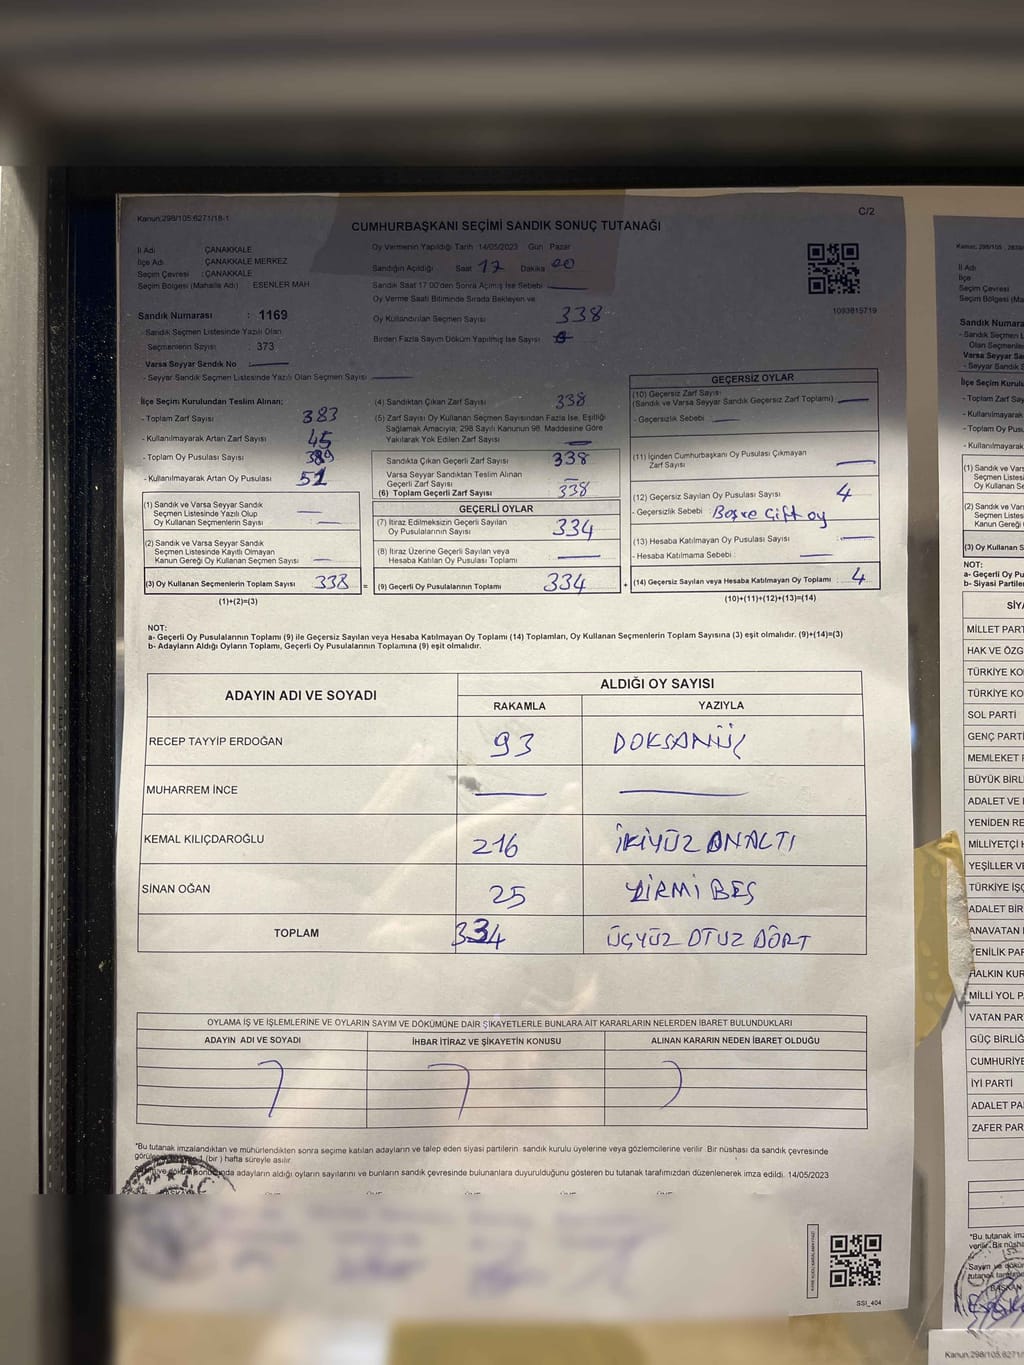 Kanun;298/105;6271/18-1
C/2
CUMHURBAŞKANI SEÇİMİ SANDIK SONUÇ TUTANAĞI
İl Adı ÇANAKKALE
İlçe Adı ÇANAKKALE MERKEZ
Seçim Çevresi : ÇANAKKALE
Seçim Bölgesi (Mahalle Adı) ESENLER MAH
Oy Vermenin Yapıldığı Tarih 14/05/2023 Gün Pazar
Sandığın Açıldığı Saat 17 Dakika 00
Sandık Saat 17 00'den Sonra Açılmış İse Sebebi
Oy Verme Saati Bitiminde Sırada Bekleyen ve
Oy Kullandırılan Seçmen Sayısı 338
Birden Fazla Sayım Döküm Yapılmış İse Sayısı
1093815719
Sandık Numarası : 1169
- Sandık Seçmen Listesinde Yazılı Olan
Seçmenlerin Sayısı : 373
Varsa Seyyar Sandık No
- Seyyar Sandık Seçmen Listesinde Yazılı Olan Seçmen Sayısı
İlçe Seçim Kurulundan Teslim Alınan;
- Toplam Zarf Sayısı 383
- Kullanılmayarak Artan Zarf Sayısı 45
- Toplam Oy Pusulası Sayısı 389
- Kullanılmayarak Artan Oy Pusulası 51
(1) Sandık ve Varsa Seyyar Sandık
Seçmen Listesinde Yazılı Olup
Oy Kullanan Seçmenlerin Sayısı
(2) Sandık ve Varsa Seyyar Sandık
Seçmen Listesinde Kayıtlı Olmayan
Kanun Gereği Oy Kullanan Seçmen Sayısı
(3) Oy Kullanan Seçmenlerin Toplam Sayısı 338 =
(1)+(2)=(3)
(4) Sandıktan Çıkan Zarf Sayısı 338
(5) Zarf Sayısı Oy Kullanan Seçmen Sayısından Fazla İse, Eşitliği
Sağlamak Amacıyla; 298 Sayılı Kanunun 98. Maddesine Göre
Yakılarak Yok Edilen Zarf Sayısı
Sandıkta Çıkan Geçerli Zarf Sayısı 338
Varsa Seyyar Sandıktan Teslim Alınan
Geçerli Zarf Sayısı
(6) Toplam Geçerli Zarf Sayısı 338
GEÇERLİ OYLAR
(7) İtiraz Edilmeksizin Geçerli Sayılan
Oy Pusulalarının Sayısı 334
(8) İtiraz Üzerine Geçerli Sayılan veya
Hesaba Katılan Oy Pusulası Toplamı
(9) Geçerli Oy Pusulalarının Toplamı 334 +
GEÇERSİZ OYLAR
(10) Geçersiz Zarf Sayısı
(Sandık ve Varsa Seyyar Sandık Geçersiz Zarf Toplamı)
- Geçersizlik Sebebi
(11) İçinden Cumhurbaşkanı Oy Pusulası Çıkmayan
Zarf Sayısı
(12) Geçersiz Sayılan Oy Pusulası Sayısı 4
- Geçersizlik Sebebi : Gift oy
(13) Hesaba Katılmayan Oy Pusulası Sayısı
- Hesaba Katılmama Sebebi
(14) Geçersiz Sayılan veya Hesaba Katılmayan Oy Toplamı 4
(10)+(11)+(12)+(13)=(14)
NOT:
a- Geçerli Oy Pusulalarının Toplamı (9) ile Geçersiz Sayılan veya Hesaba Katılmayan Oy Toplamı (14) Toplamları, Oy Kullanan Seçmenlerin Toplam Sayısına (3) eşit olmalıdır. (9)+(14)=(3)
b- Adayların Aldığı Oyların Toplamı, Geçerli Oy Pusulalarının Toplamına (9) eşit olmalıdır.
ADAYIN ADI VE SOYADI
ALDIĞI OY SAYISI
RAKAMLA YAZIYLA
RECEP TAYYİP ERDOĞAN 93 DOKSANÜÇ
MUHARREM İNCE
KEMAL KILIÇDAROĞLU 216 İKİYÜZ ONALTI
SİNAN OĞAN 25 YİRMİ BEŞ
TOPLAM 334 ÜÇYÜZ OTUZ DÖRT
OYLAMA İŞ VE İŞLEMLERİNE VE OYLARIN SAYIM VE DÖKÜMÜNE DAİR ŞİKAYETLERLE BUNLARA AİT KARARLARIN NELERDEN İBARET BULUNDUKLARI
ADAYIN ADI VE SOYADI İHBAR İTİRAZ VE ŞİKAYETİN KONUSU ALINAN KARARIN NEDEN İBARET OLDUĞU
*Bu tutanak imzalandıktan ve mühürlendikten sonra seçime katılan adayların ve talep eden siyasi partilerin sandık kurulu üyelerine ve gözlemcilerine verilir Bir nüshası da sandık çevresinde
1 (bir) hafta süreyle asılır
adayların aldığı oyların sayılarını ve bunların sandık çevresinde bulunanlara duyurulduğunu gösteren bu tutanak tarafımızdan düzenlenerek imza edildi. 14/05/2023
SSI_404
İl Adı
İlçe
Seçim Çevresi
Seçim Bölgesi (Maha
Sandık Numara
- Sandık Seçmen L
Olan Seçmenle
Varsa Seyyar Sa
- Seyyar Sandık
İlçe Seçim Kurulu
- Toplam Zarf Say
- Kullanılmayarak
- Toplam Oy Pusu
- Kullanılmayarak
(1) Sandık ve Vars
Seçmen Listesi
Oy Kullanan Se
(2) Sandık ve Vars
Seçmen Listes
Kanun Gereği O
(3) Oy Kullanan S
NOT:
a- Geçerli Oy Pu
b- Siyasi Partile
SİYA
MİLLET PART
HAK VE ÖZG
TÜRKİYE KO
TÜRKİYE KO
SOL PARTİ
GENÇ PARTİ
MEMLEKET P
BÜYÜK BİRL
ADALET VE K
YENİDEN RE
MİLLİYETÇİ H
YEŞİLLER VE
TÜRKİYE İŞÇ
ADALET BİR
ANAVATAN
YENİLİK PAR
HALKIN KUR
MİLLİ YOL P
VATAN PART
GÜÇ BİRLİĞ
CUMHURİYE
İYİ PARTİ
ADALET PA
ZAFER PAR
*Bu tutanak imz
verilir. Bir nüsha
Sayım ve dökü
BAŞKAN
Kanun;298/105,6271/